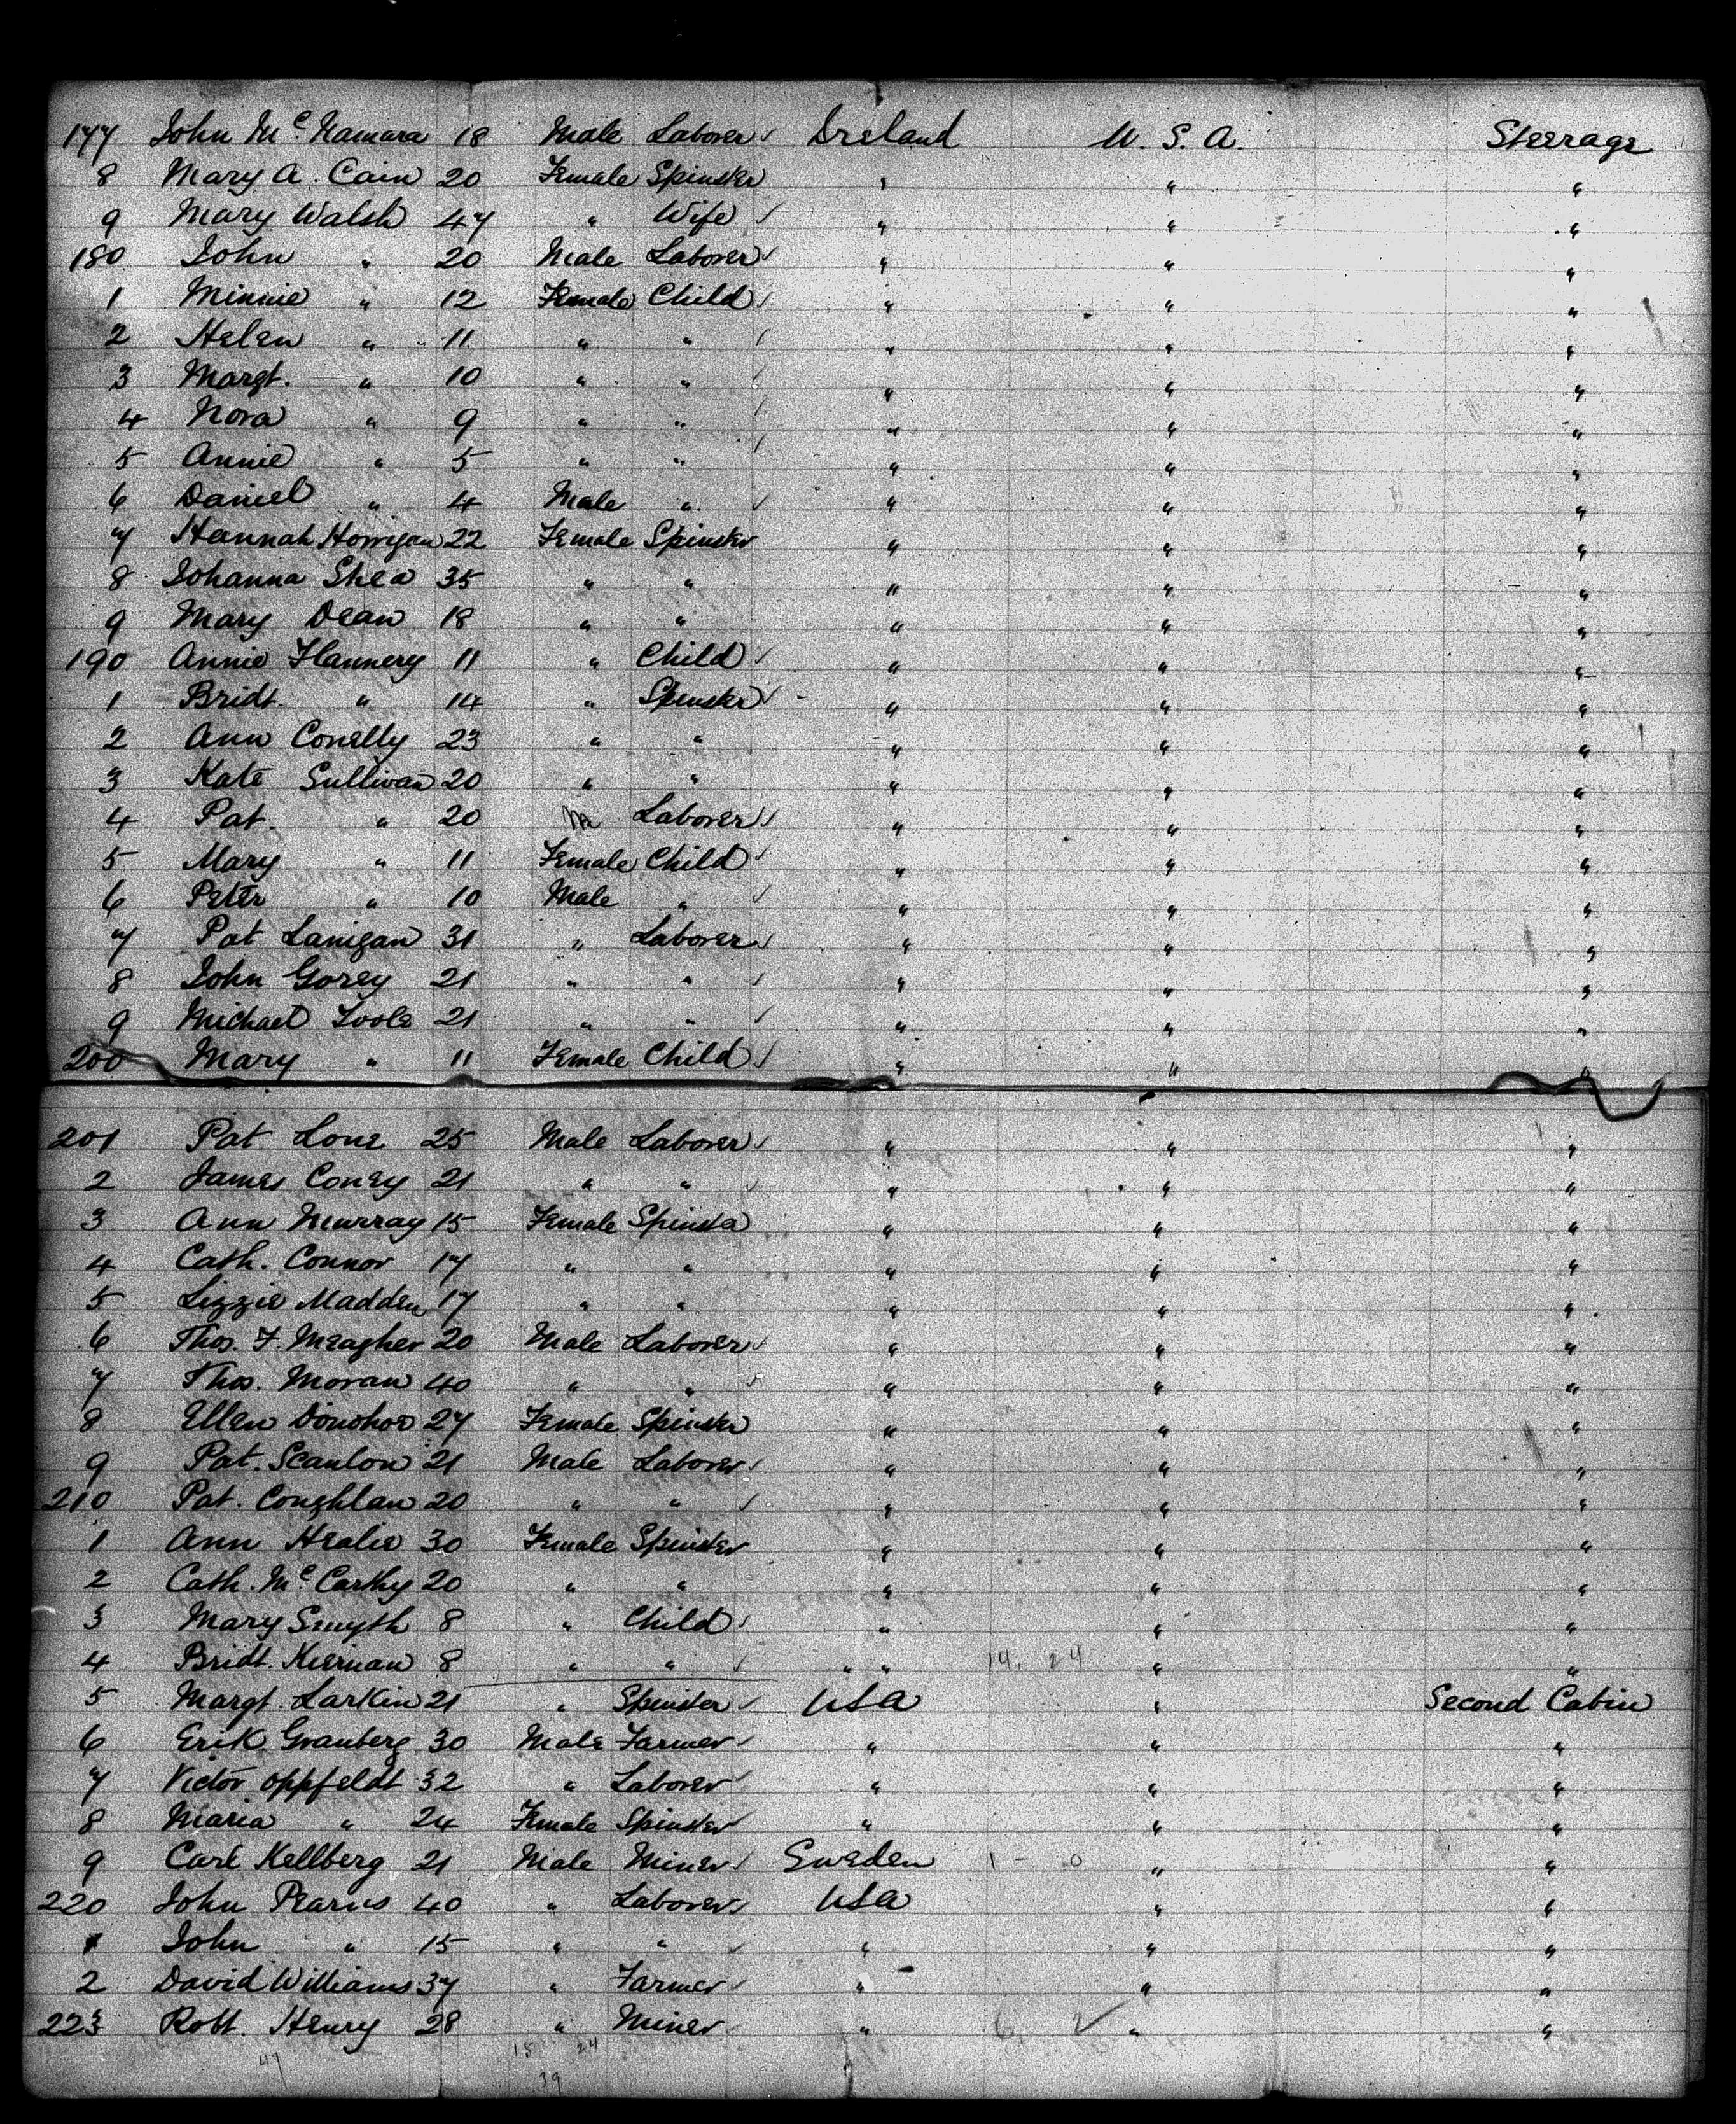 177 John McNamara 18 Male Laborer ✓ Ireland U. S. A. Steerage
8 Mary A. Cain 20 Female Spinster " " "
9 Mary Walsh 47 " Wife ✓ " " "
180 John " 20 Male Laborer ✓ " " "
1 Minnie " 12 Female Child ✓ " " "
2 Helen " 11 " " ✓ " " "
3 Margt. " 10 " " ✓ " " "
4 Nora " 9 " " ✓ " " "
5 Annie " 5 " " ✓ " " "
6 Daniel " 4 Male " ✓ " " "
7 Hannah Horrigan 22 Female Spinster " " "
8 Johanna Shea 35 " " " " "
9 Mary Dean 18 " " " " "
190 Annie Flannery 11 " Child ✓ " " "
1 Bridt. " 14 " Spinster ✓ " " "
2 Ann Conelly 23 " " " " "
3 Kate Sullivan 20 " " " " "
4 Pat. " 20 M Laborer ✓ " " "
5 Mary " 11 Female Child ✓ " " "
6 Peter " 10 Male " ✓ " " "
7 Pat Lanigan 31 " Laborer ✓ " " "
8 John Gorey 21 " " ✓ " " "
9 Michael Toole 21 " " ✓ " " "
200 Mary " 11 Female Child ✓ " " "
201 Pat Lone 25 Male Laborer ✓ " " "
2 James Coney 21 " " ✓ " " "
3 Ann Murray 15 Female Spinster " " "
4 Cath. Connor 17 " " " " "
5 Lizzie Madden 17 " " " " "
6 Thos. F. Meagher 20 Male Laborer ✓ " " "
7 Thos. Moran 40 " " ✓ " " "
8 Ellen Donohoe 27 Female Spinster " " "
9 Pat. Scanlon 21 Male Laborer ✓ " " "
210 Pat. Coughlan 20 " " ✓ " " "
1 Ann Healie 30 Female Spinster " " "
2 Cath. McCarthy 20 " " " " "
3 Mary Smyth 8 " Child ✓ " " "
4 Bridt. Kiernan 8 " " ✓ " " 14. 24 " "
5 Margt. Larkin 21 " Spinster ✓ USA " Second Cabin
6 Erik Granberg 30 Male Farmer ✓ " " "
7 Victor Oppfeldt 32 " Laborer ✓ " " "
8 Maria " 24 Female Spinster ✓ " " "
9 Carl Kellberg 21 Male Miner ✓ Sweden 1 - 0 " "
220 John Pearns 40 " Laborer ✓ USA " "
1 John " 15 " " ✓ " " "
2 David Williams 37 " Farmer ✓ " " "
223 Robt. Henry 28 " Miner ✓ " 6 ✓ " "
15 24
47 39